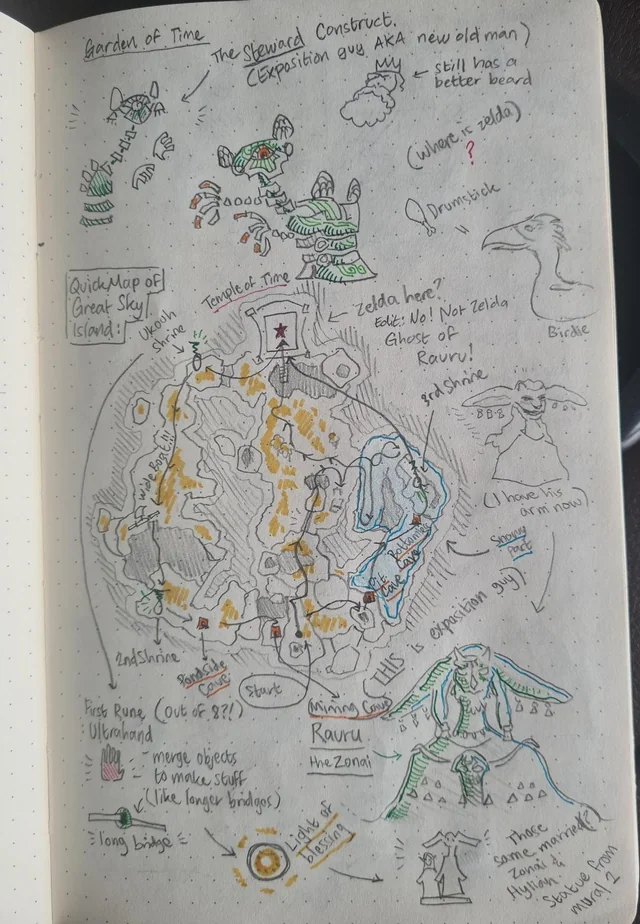 Garden of Time
The Steward Construct.
(Exposition guy AKA new old man)
still has a
better beard
(where is zelda)
?
Drumstick
Birdie
Quick Map of
Great Sky
Island:
Temple of Time
Ukouh
Shrine
zelda here?
Edit: No! Not Zelda
Ghost of
Rauru!
3rd Shrine
(I have his
arm now)
wide Boat!!!
Snowy
Part
Bottomless
Cave
Pit
Cave
2nd Shrine
Pondside
Cave
Start
Mining Cave
(THIS is exposition guy)
First Rune (out of 8?!)
Ultrahand
- merge objects
to make stuff
(like longer bridges)
long bridge
Rauru
the Zonai
Light of
blessing
Those
same married?
Zonai &
Hylian.
Statue from
mural 2